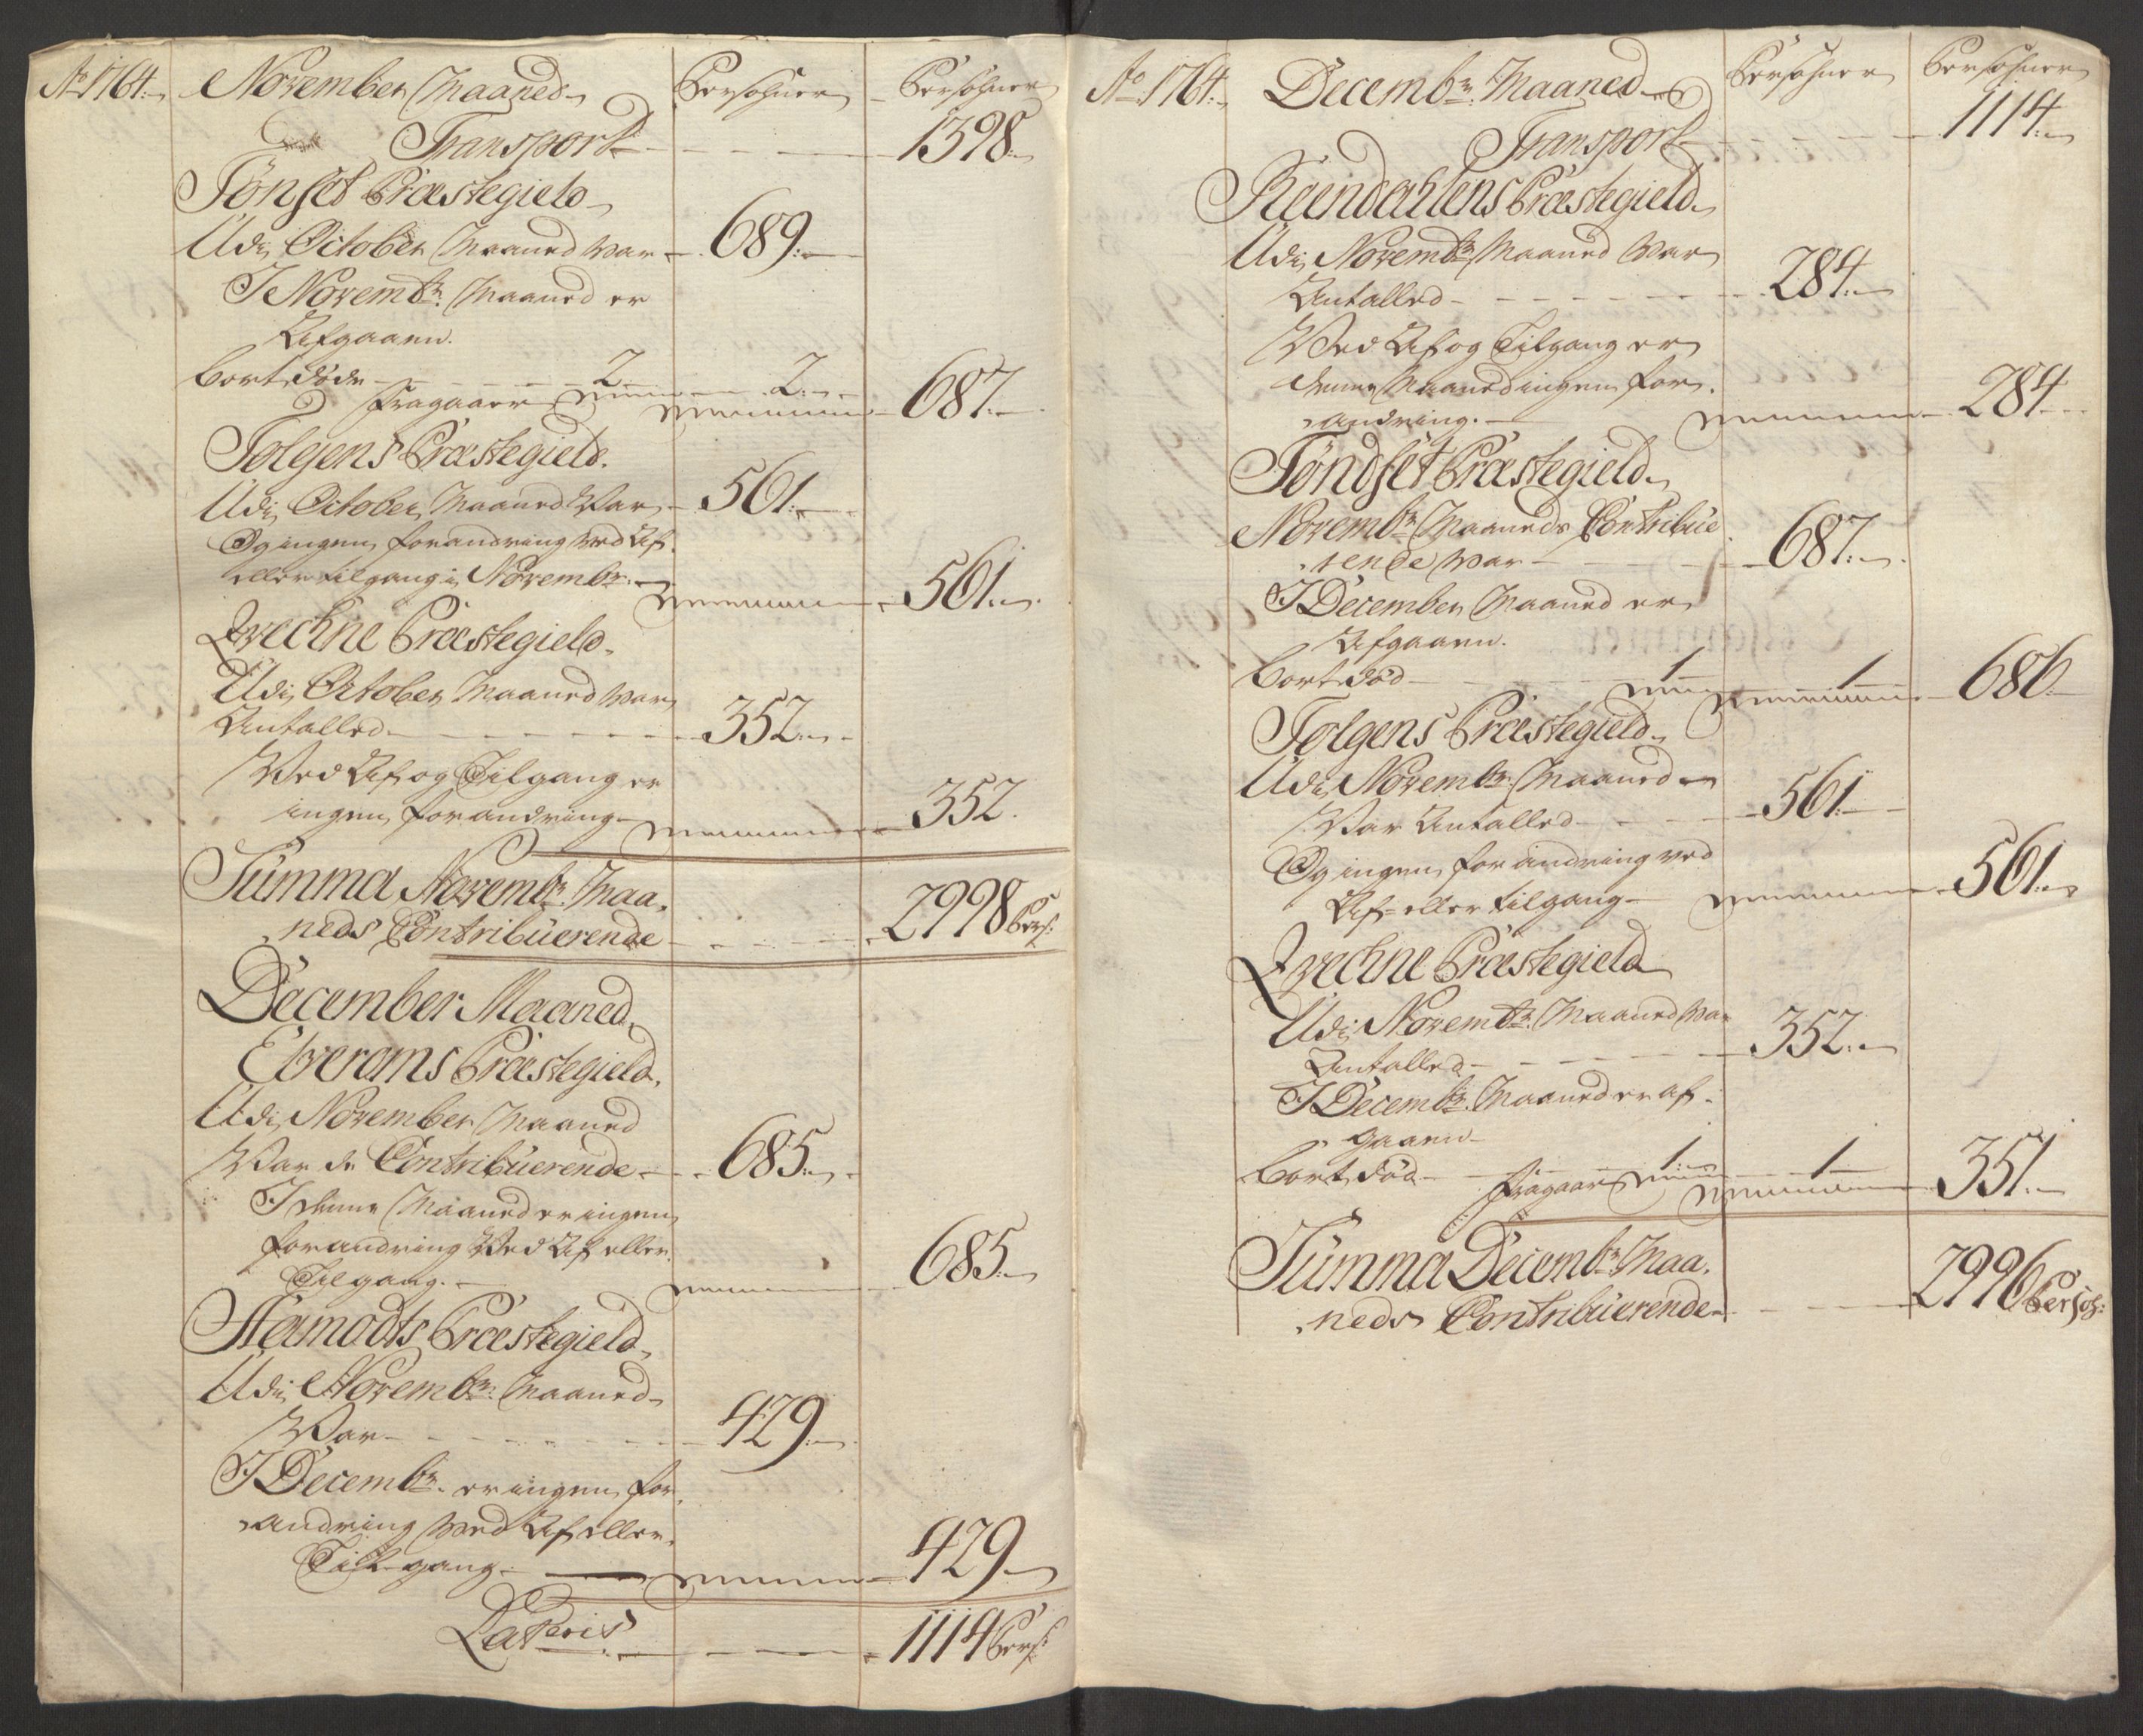 Ao 1764.
November Maaned
Persohner
Persohner
Transport 1398.
Tönset Præstegield
Udi October Maaned war 689.
I Novembr. Maaned er
Afgaaen.
bort døde 2
fragaaer 2. 687.
Tolgens Præstegield.
Udi October Maaned War 561.
Og ingen forandring ved Af-
eller tilgang i Novembr. 561.
Qvechne Præstegield.
Udi October Maaned war
Antalled 352.
Ved Af og Tilgang er
ingen forandring 352.
Summa Novembr. Maa-
neds Contribuerende 2998 Pers:
December Maaned
Elveroms Præstegield.
Udi November Maaned
War de Contribuerende 685.
I denne Maaned er ingen
forandring Ved Af eller
Tilgang. 685.
Aamodts Præstegield
Udi Novembr. Maaned
War 429.
I Decembr. er ingen for-
andring ved Af eller
Till-gang. 429.
Lateris 1114 Pers:
Ao 1764.
Decembr. Maaned
Persohner
Persohner
Transport 1114.
Reendahlens Præstegield.
Udi Novembr. Maaned War
Antalled 284.
Ved Af og Tilgang er
denne Maaned ingen for-
andring. 284.
Töndset Præstegield.
Novembr. Maaneds Contribue-
rende war 687.
I December Maaned er
Afgaaen.
bort död 1 1 686.
Tolgens Præstegield.
Udi Novembr. Maaned
War Antalled 561.
Og ingen forandring ved
Af- eller tilgang 561.
Qvechne Præstegield
Udi Novembr. Maaned War
Antalled 352.
I Decembr. Maaned er af-
gaaen
bort död 1.
fragaaer 1 351.
Summa Decembr. Maa-
neds Contribuerende 2996 Persoh: